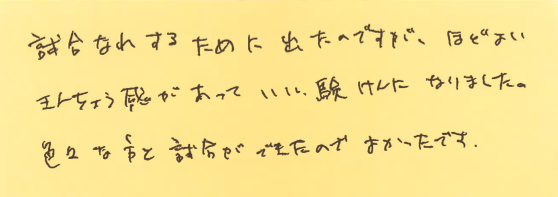 試合なれするために出たのですが、ほどよい
きんちょう感があっていい験けんになりました。
色々な方と試合ができたのでよかったです.